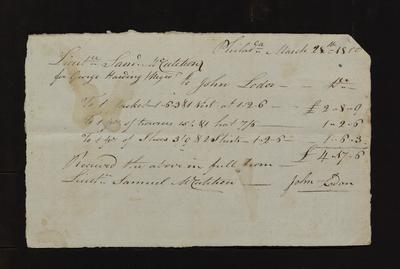 Philad.a March 28th 18
Lieut.n Sam.l McCutchon
for George Harding (Negro) to John Lodor — Dr
To 1 Jacket 1-5-3 & 1 Vest at 1-2-6 — £ 2-8-9
To 1 pr of 15/ & 1 hat 7/6 — 1-2-6
To 1 pr of Shoes 3/9 & 2 Shirts 1-2-6 — 1-6-3
Received the above in full from — £ 4-17-6
Lieut.n Samuel McCutchon — John Lodor